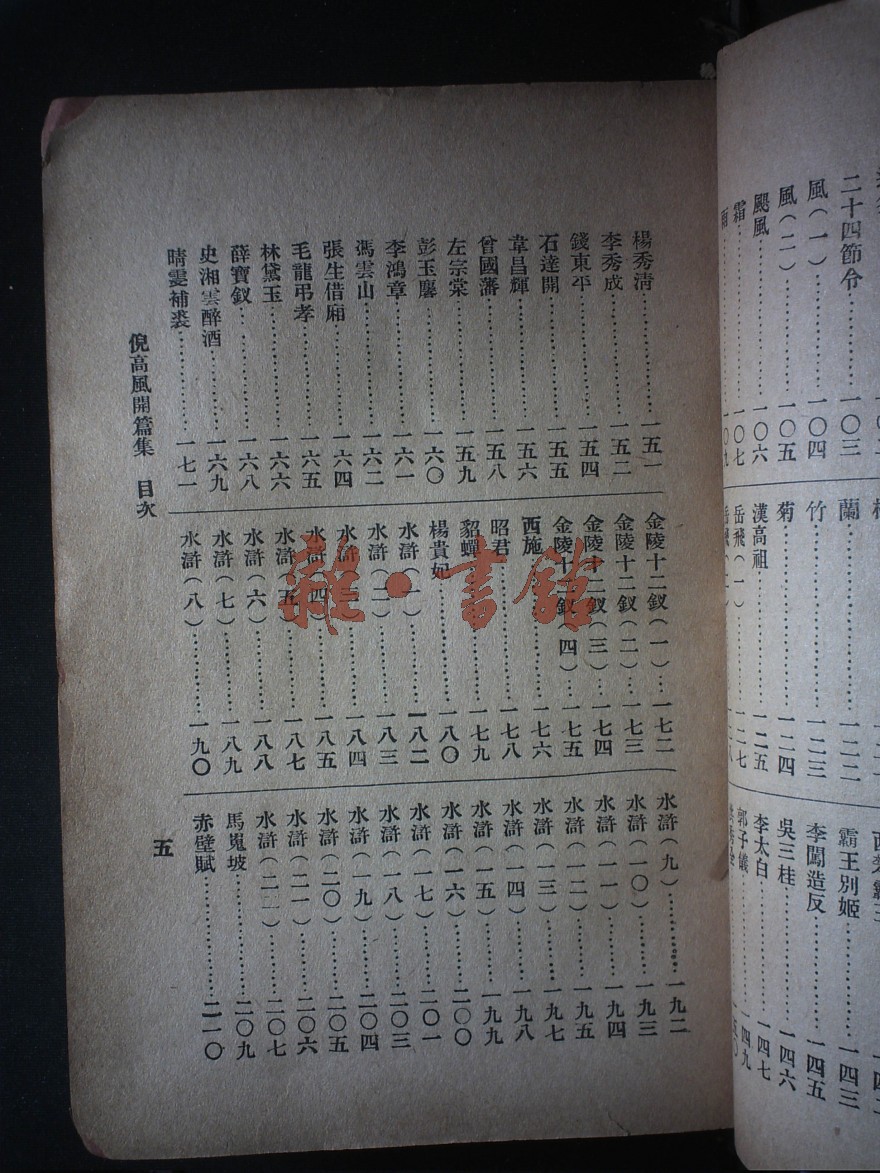 楊秀清………………一五一
李秀成………………一五二
錢東平………………一五四
石達開………………一五五
韋昌輝………………一五六
曾國藩………………一五八
左宗棠………………一五九
彭玉麐………………一六〇
李鴻章………………一六一
馮雲山………………一六二
張生借廂………………一六四
毛龍弔孝………………一六五
林黛玉………………一六六
薛寶釵………………一六八
史湘雲醉酒………………一六九
晴雯補裘………………一七一
金陵十二釵(一)…一七二
金陵十二釵(二)…一七三
金陵十二釵(三)…一七四
金陵十二釵(四)…一七五
西施………………一七六
昭君………………一七八
貂蟬………………一七九
楊貴妃………………一八〇
水滸(一)………………一八二
水滸(二)………………一八三
水滸(三)………………一八四
水滸(四)………………一八五
水滸(五)………………一八七
水滸(六)………………一八八
水滸(七)………………一八九
水滸(八)………………一九〇
水滸(九)………………一九二
水滸(一〇)………………一九三
水滸(一一)………………一九四
水滸(一二)………………一九五
水滸(一三)………………一九七
水滸(一四)………………一九八
水滸(一五)………………一九九
水滸(一六)………………二〇〇
水滸(一七)………………二〇一
水滸(一八)………………二〇三
水滸(一九)………………二〇四
水滸(二〇)………………二〇五
水滸(二一)………………二〇六
水滸(二二)………………二〇七
馬嵬坡………………二〇九
赤壁賦………………二一〇
倪高風開篇集 目次
五
二十四節令………一〇三
風(一)………………一〇四
風(二)………………一〇五
颶風………………一〇六
霜………………一〇七
雨………………一〇九
蘭………………一二二
竹………………一二三
菊………………一二四
漢高祖………………一二五
岳飛(一)………………一二七
岳飛(二)………………一二八
霸王別姬………………一四三
李闖造反………………一四五
吳三桂………………一四六
李太白………………一四七
郭子儀………………一四九
雜·書館